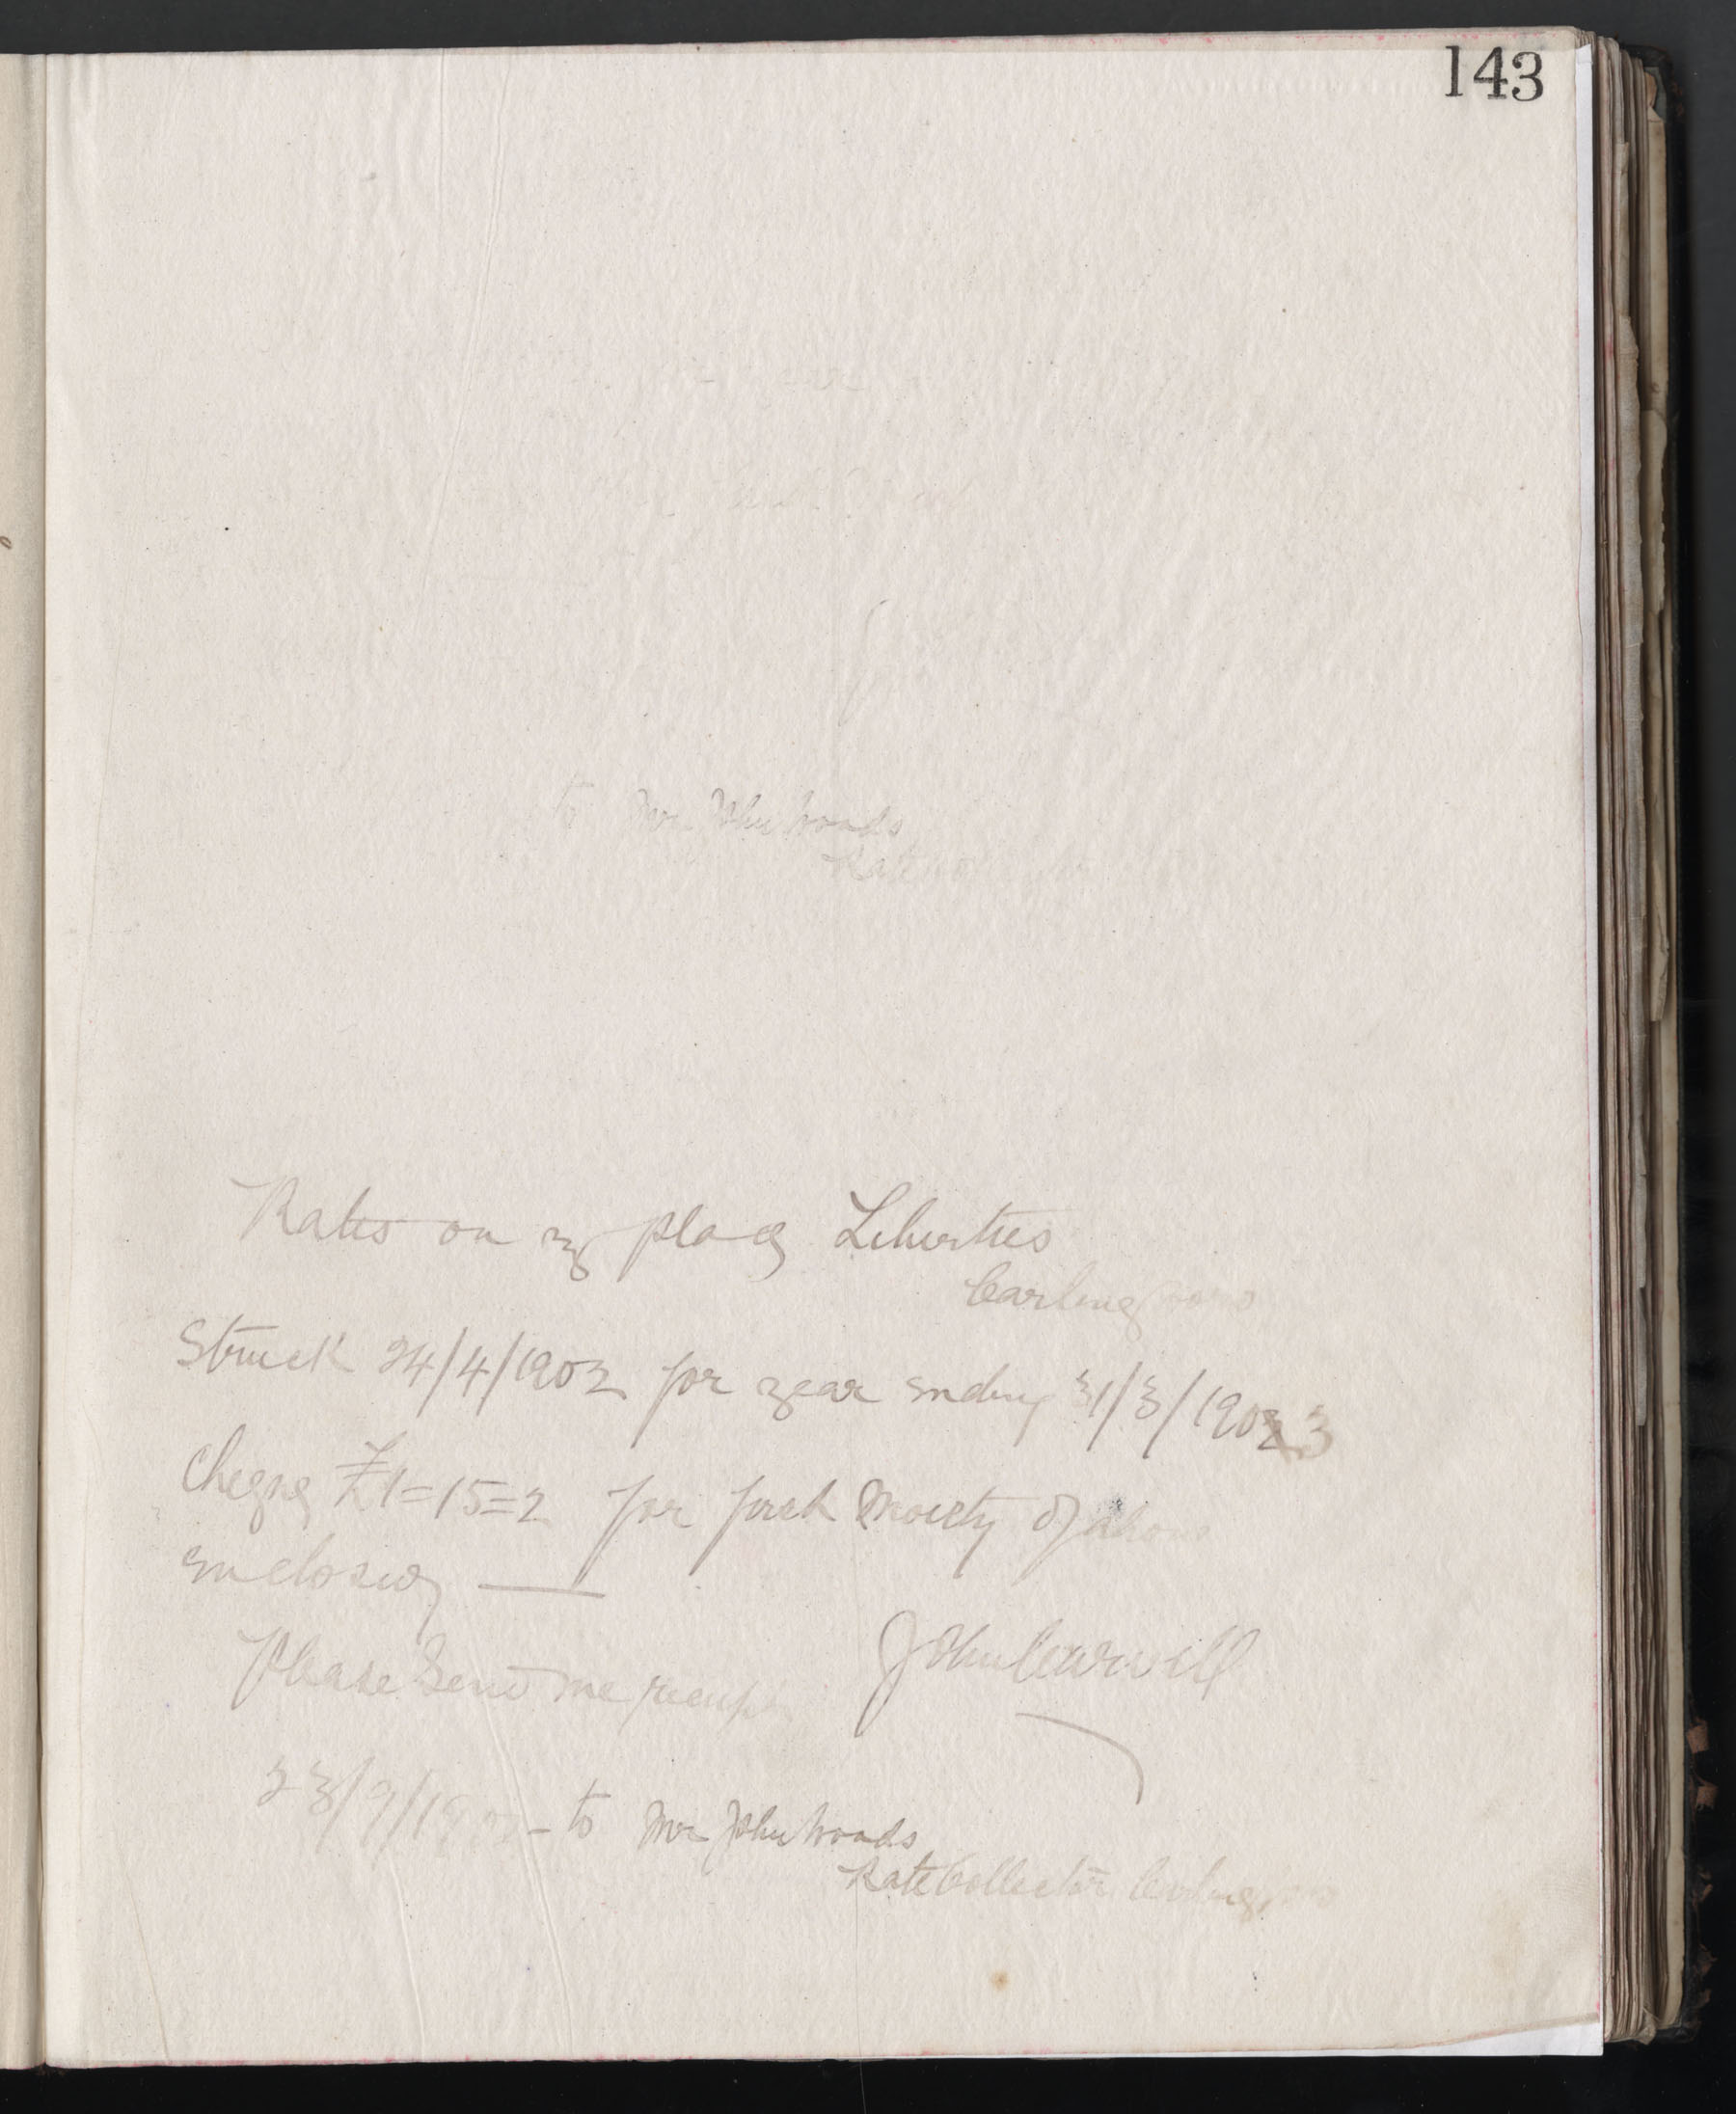 143
to Mr John Woods
Rate
Rates on my place Liberties
Carlingford
Struck 24/4/1902 for year ending 31/3/1903
Cheque £1=15=2 for first Moiety of above
enclosed —
Please Send me receipt John Carvill
23/9/1902 - to Mr John Woods
Rate Collector Carlingford